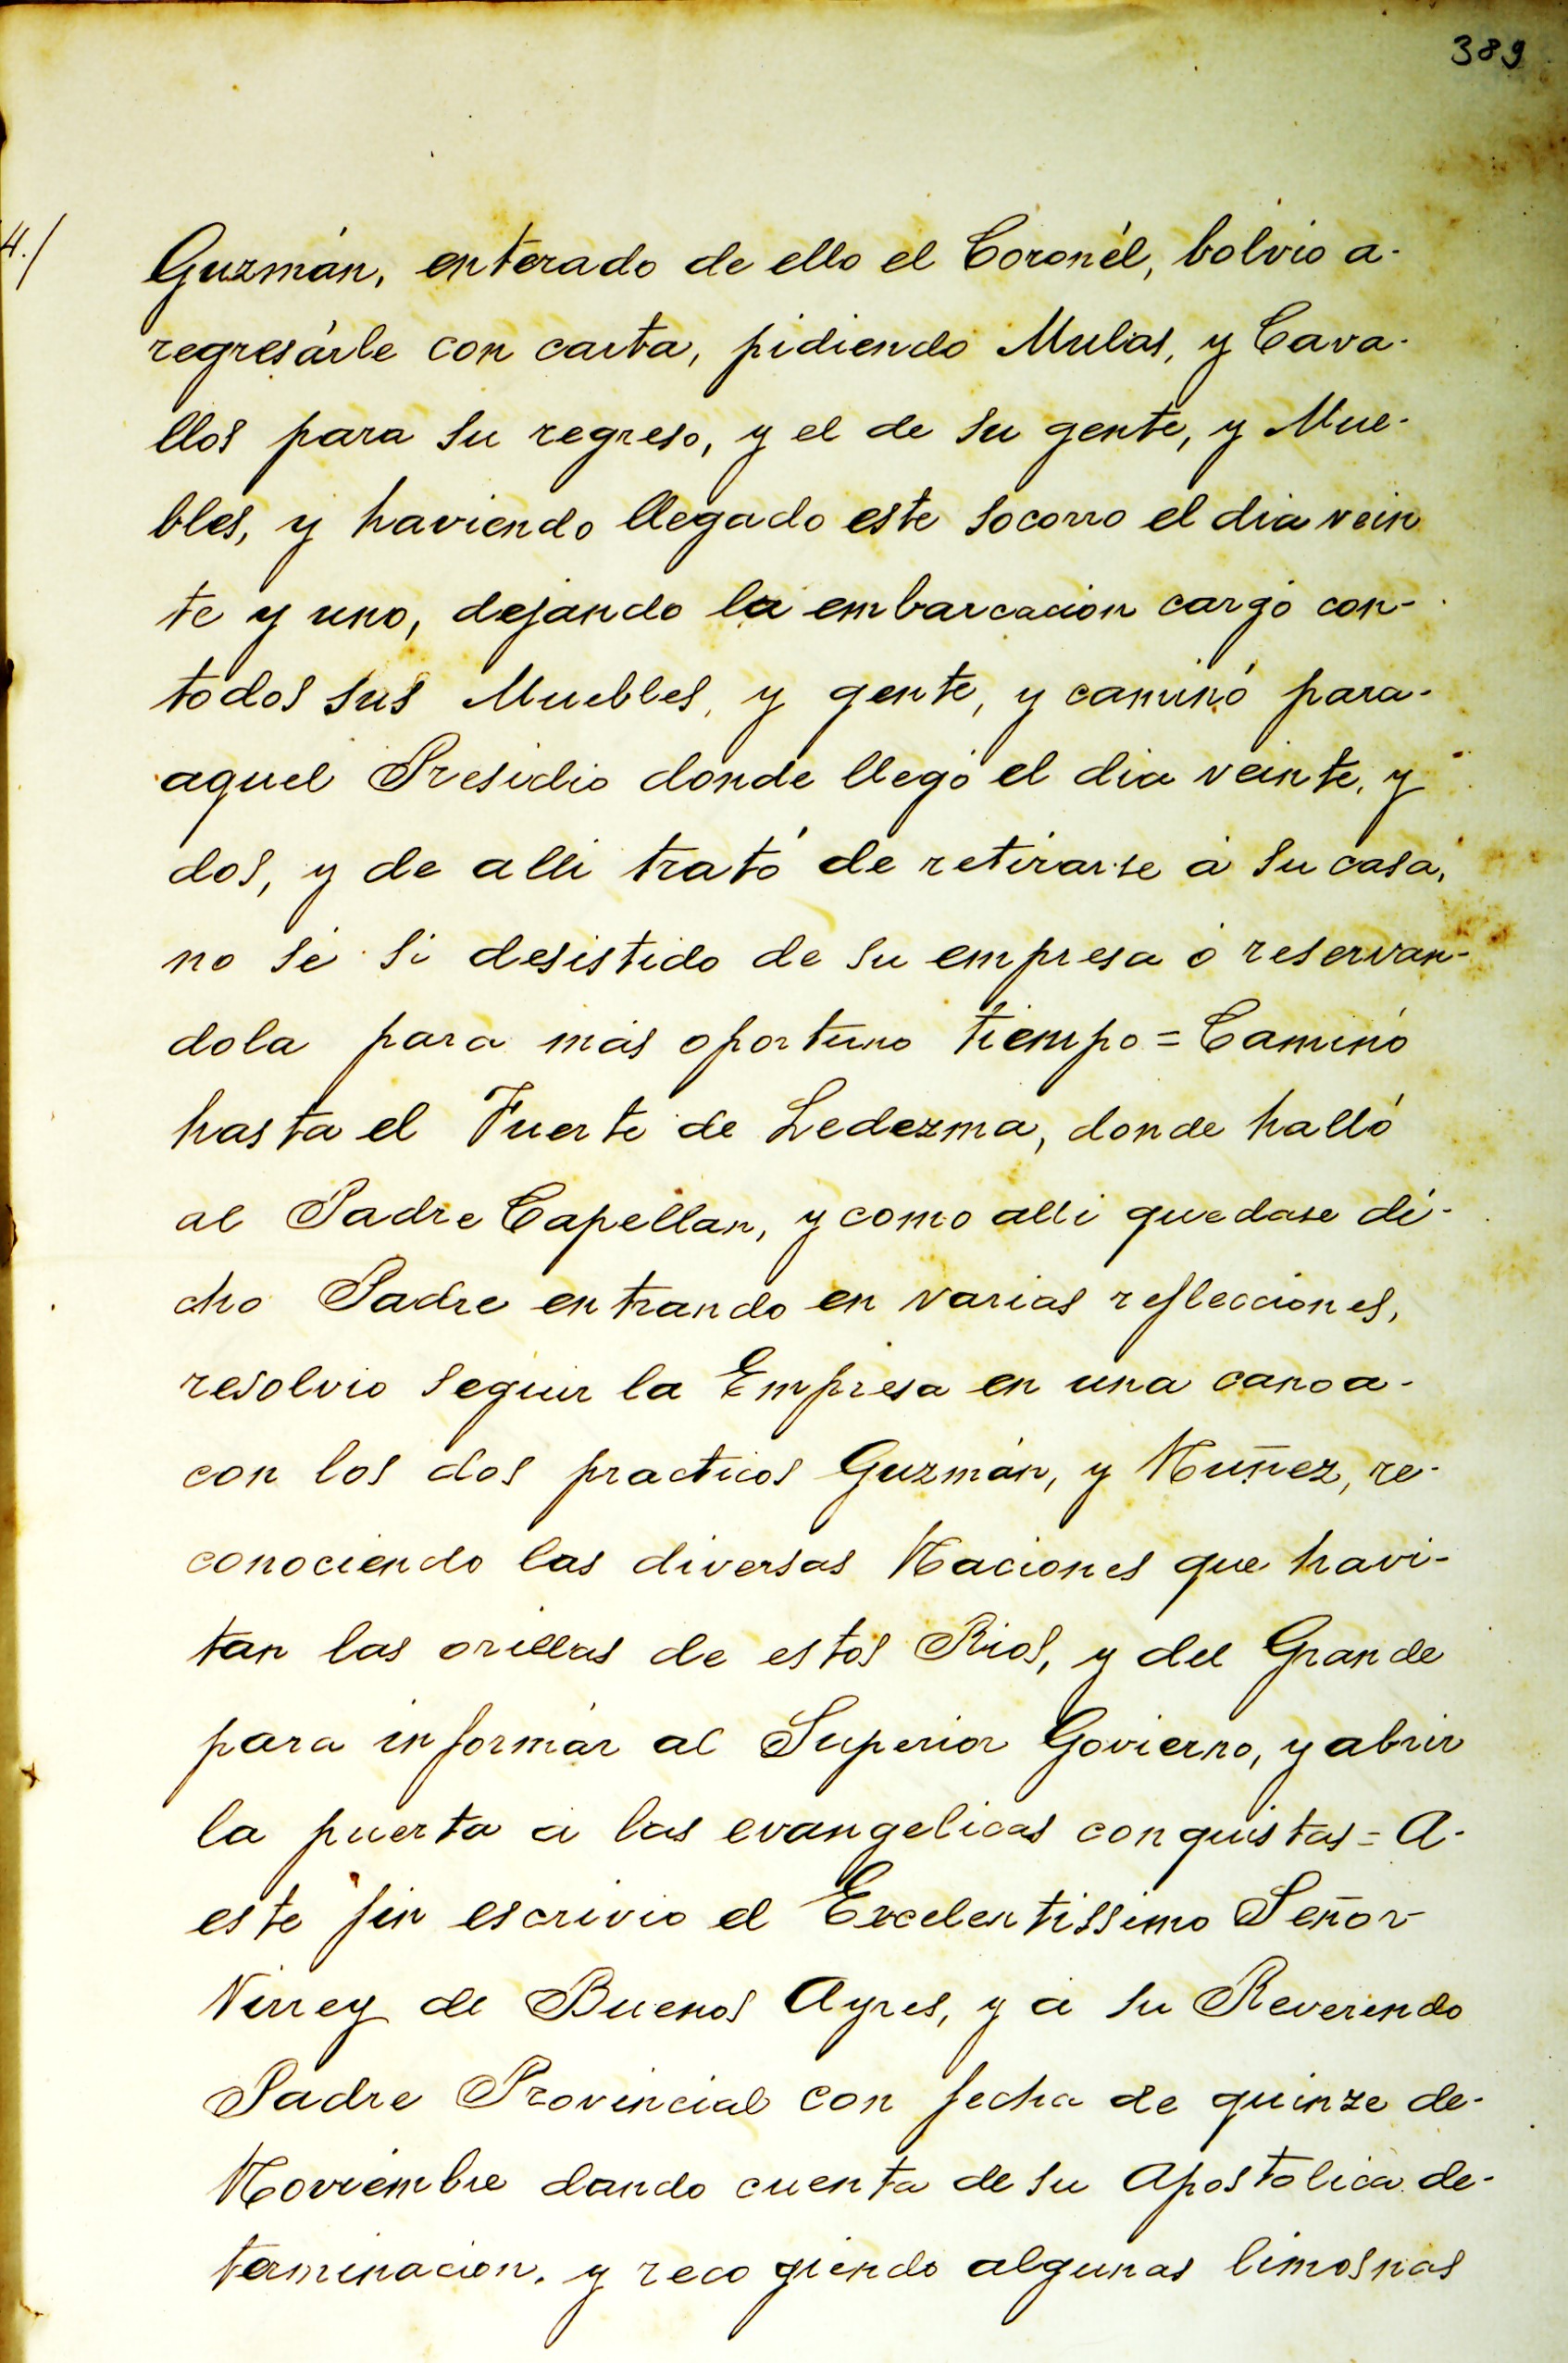 389
4./
Guzmán, enterado de ello el Coronél, bolvio a-
regresárle con carta, pidiendo Mulas, y Cava-
llos para su regreso, y el de su gente, y Mue-
bles, y haviendo llegado este socorro el dia vein
te y uno, dejando la embarcacion cargó con-
todos sus Muebles, y gente, y caminó para-
aquel Presidio donde llegó el dia veinte, y
dos, y de alli trató de retirarse á su casa,
no sé si desistido de su empresa ó reservan-
dola para más oportuno tiempo = Caminó
hasta el Fuerte de Ledezma, donde halló
al Padre Capellan, y como alli quedase di-
cho Padre entrando en varias reflecciones,
resolvio seguir la Empresa en una canoa-
con los dos practicos Guzmán, y Nuñez, re-
conociendo las diversas Naciones que havi-
tan las orillas de estos Rios, y del Grande
para informár al Superior Govierno, y abrir
la puerta a las evangelicas conquistas = A-
este fin escrivio el Excelentissimo Señor-
Virrey de Buenos Ayres, y á su Reverendo
Padre Provincial con fecha de quinze de-
Noviembre dando cuenta de su Apostolica de-
terminacion, y recogiendo algunas limosnas